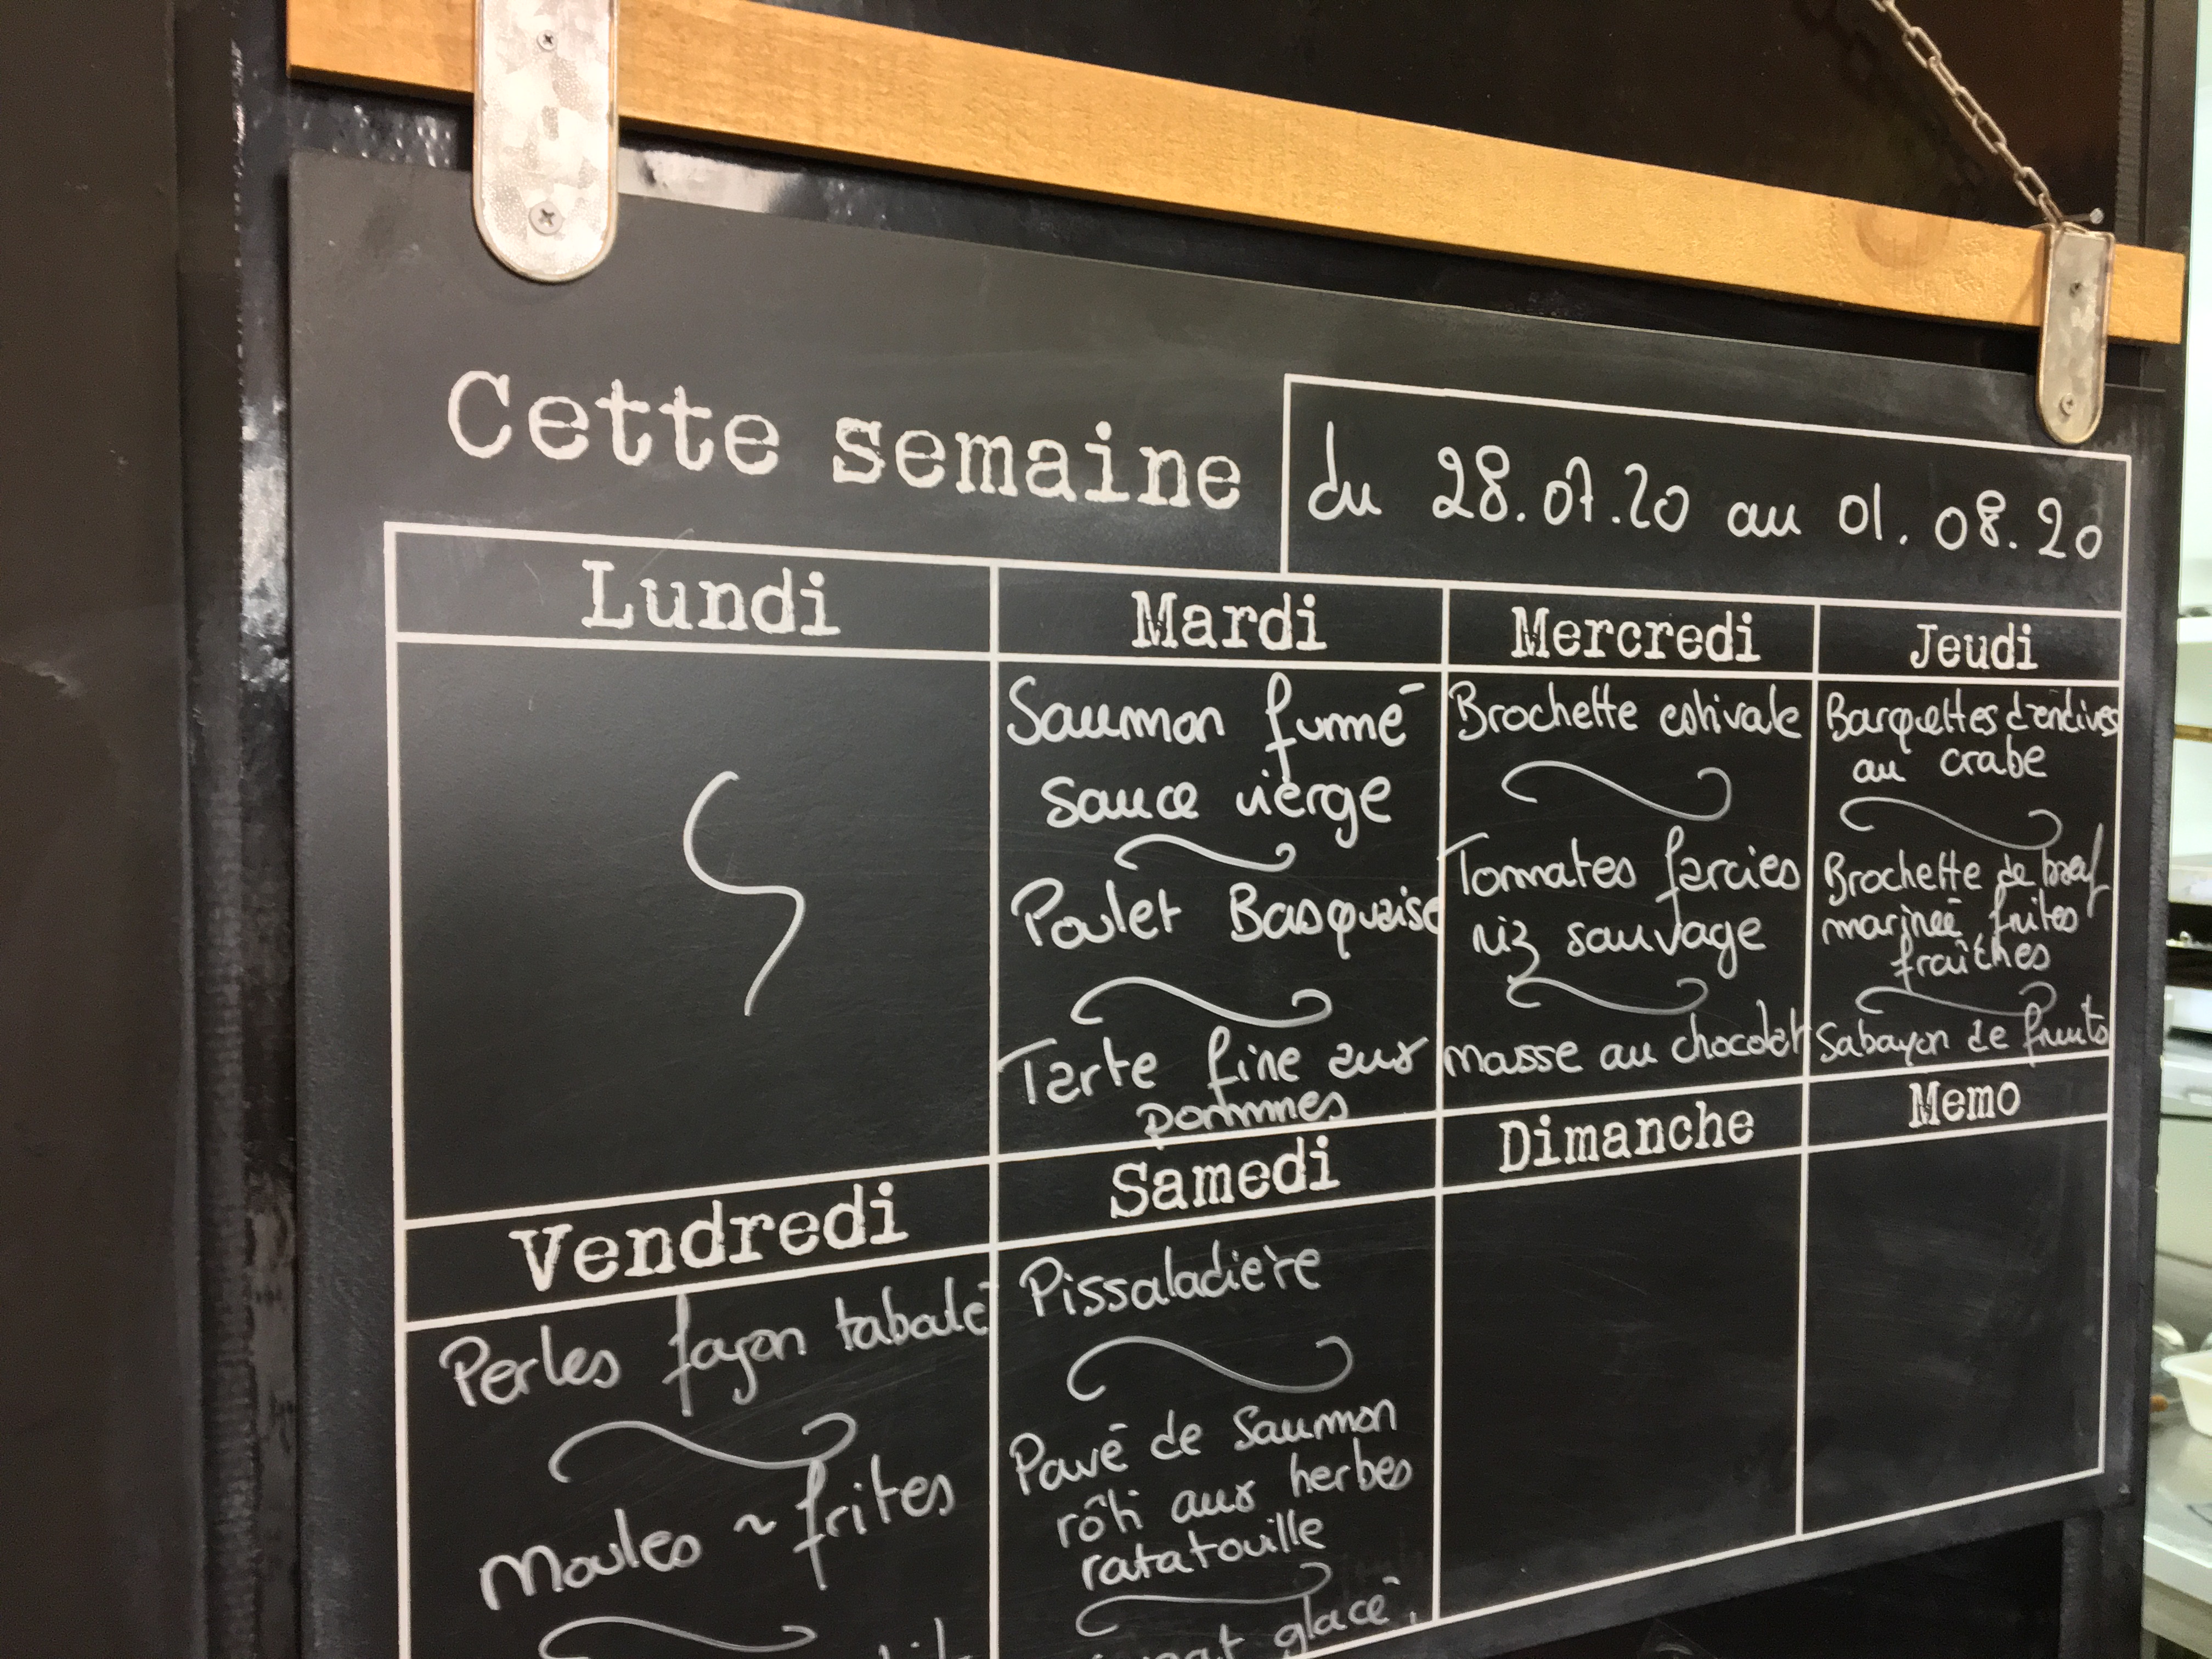 Cette semaine
du 28.07.20 au 01.08.20
Lundi
Mardi
Saumon fumé
sauce vierge
Poulet Basquaise
Tarte fine aux
pommes
Mercredi
Brochette estivale
Tomates farcies
riz sauvage
masse au chocolat
Jeudi
Barquettes d'endives
au crabe
Brochette de bœuf
marinée frites
fraîches
Sabayon de fruits
Vendredi
Perles façon taboulé
Moules ~ frites
Samedi
Pissaladière
Pavé de Saumon
rôti aux herbes
ratatouille
glacé
Dimanche
Memo